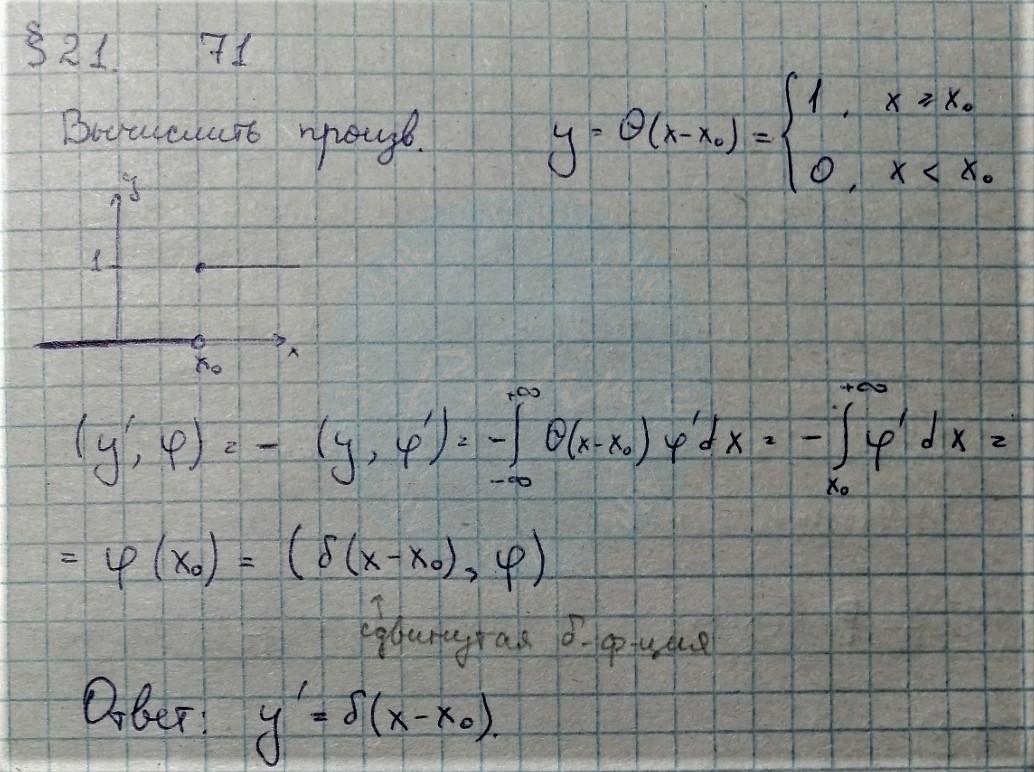 § 21. 71
Вычислить произв. y = θ(x-x₀) = { 1, x ≥ x₀
0, x < x₀
y
1
x₀ x
(y', φ) = - (y, φ') = - ∫_{-∞}^{+∞} θ(x-x₀) φ' dx = - ∫_{x₀}^{+∞} φ' dx =
= φ(x₀) = (δ(x-x₀), φ)
↑
сдвинутая δ-ф-ция
Ответ: y' = δ(x-x₀).